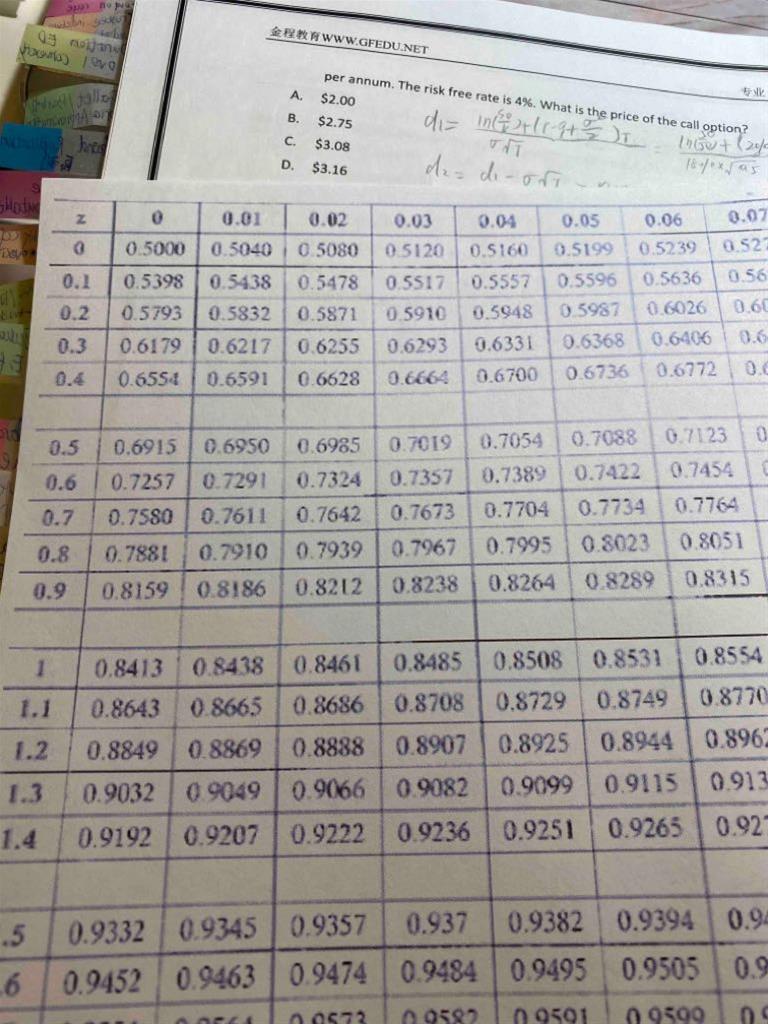 金程教育WWW.GFEDU.NET
专业
per annum. The risk free rate is 4%. What is the price of the call option?
A. $2.00
B. $2.75
C. $3.08
D. $3.16
d1=
d2 = d1 - σ√T
z 0 0.01 0.02 0.03 0.04 0.05 0.06 0.07
0 0.5000 0.5040 0.5080 0.5120 0.5160 0.5199 0.5239 0.527
0.1 0.5398 0.5438 0.5478 0.5517 0.5557 0.5596 0.5636 0.56
0.2 0.5793 0.5832 0.5871 0.5910 0.5948 0.5987 0.6026 0.60
0.3 0.6179 0.6217 0.6255 0.6293 0.6331 0.6368 0.6406 0.6
0.4 0.6554 0.6591 0.6628 0.6664 0.6700 0.6736 0.6772
0.5 0.6915 0.6950 0.6985 0.7019 0.7054 0.7088 0.7123 0
0.6 0.7257 0.7291 0.7324 0.7357 0.7389 0.7422 0.7454
0.7 0.7580 0.7611 0.7642 0.7673 0.7704 0.7734 0.7764
0.8 0.7881 0.7910 0.7939 0.7967 0.7995 0.8023 0.8051
0.9 0.8159 0.8186 0.8212 0.8238 0.8264 0.8289 0.8315
1 0.8413 0.8438 0.8461 0.8485 0.8508 0.8531 0.8554
1.1 0.8643 0.8665 0.8686 0.8708 0.8729 0.8749 0.8770
1.2 0.8849 0.8869 0.8888 0.8907 0.8925 0.8944 0.896
1.3 0.9032 0.9049 0.9066 0.9082 0.9099 0.9115 0.913
1.4 0.9192 0.9207 0.9222 0.9236 0.9251 0.9265 0.92
.5 0.9332 0.9345 0.9357 0.937 0.9382 0.9394 0.9
.6 0.9452 0.9463 0.9474 0.9484 0.9495 0.9505 0.9
0.9573 0.9582 0.9591 0.9599